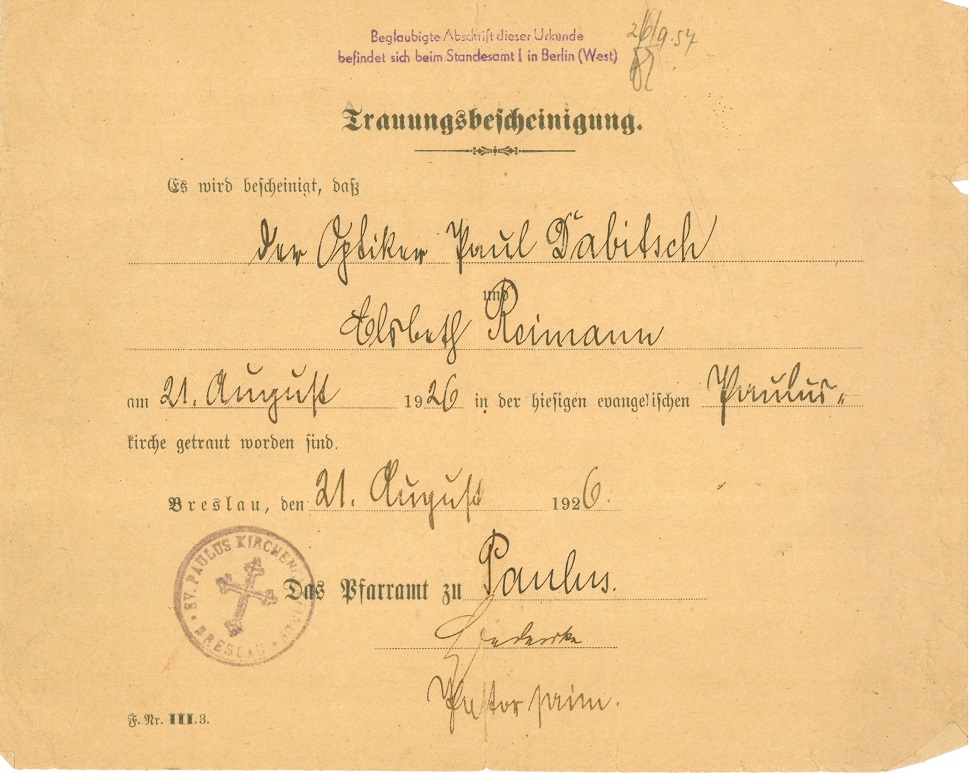 Beglaubigte Abschrift dieser Urkunde
befindet sich beim Standesamt I in Berlin (West)
Trauungsbescheinigung.
Es wird bescheinigt, daß
der Optiker Paul Dabitsch
und
Elsbeth Reimann
am 21. August 1926 in der hiesigen evangelischen Paulus-
kirche getraut worden sind.
Breslau, den 21. August 1926.
EV. PAULUS KIRCHEN
BRESLAU
Das Pfarramt zu Paulus.
Pastor prim.
F. Nr. III.3.